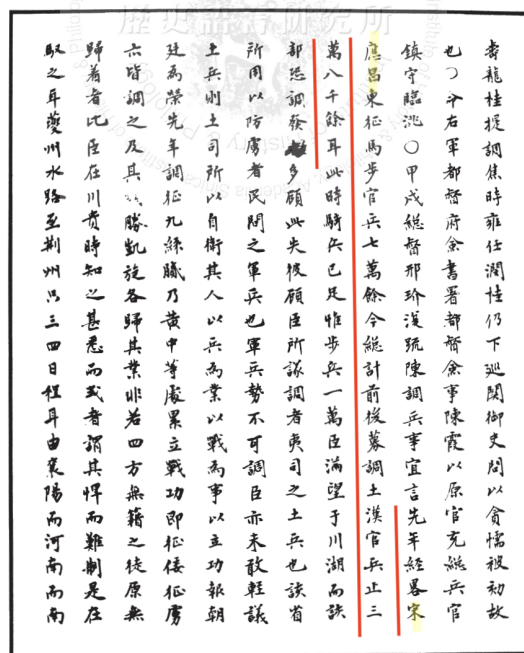 歷史語言研究所
壽龍桂提調焦時雍任潤恠仍下巡関御史問以貪懦被劾故
也〇命右軍都督府僉書署都督僉事陳霞以原官充總兵官
鎮守臨洮〇甲戌總督邢玠漫疏陳調兵事宜言先年經畧宋
應昌東征馬步官兵七萬餘今總計前後募調土漢官兵止三
萬八千餘耳此時騎兵已足惟步兵一萬臣滿望于川湖而該
部恐調發多顧此失彼顧臣所議調者夷司之土兵也該省
所用以防虜者民間之軍兵也軍兵勢不可調臣亦未敢輕議
土兵則土司所以自衛其人以兵為業以戰為事以立功報朝
廷為榮先年調征九絲膩乃黃中等處累立戰功即征倭征虜
亦皆調之及其勝凱旋各歸其業非若四方無籍之徒原無
歸着者比臣在川貴時知之甚悉而或者謂其悍而難制是在
馭之耳夔州水路至荊州只三四日程耳由襄陽而河南而南